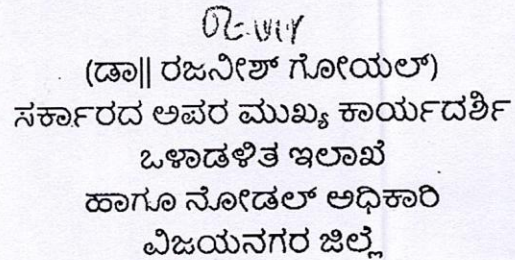 (ಡಾ|| ರಜನೀಶ್ ಗೋಯಲ್)
ಸರ್ಕಾರದ ಅಪರ ಮುಖ್ಯ ಕಾರ್ಯದರ್ಶಿ
ಒಳಾಡಳಿತ ಇಲಾಖೆ
ಹಾಗೂ ನೋಡಲ್ ಅಧಿಕಾರಿ
ವಿಜಯನಗರ ಜಿಲ್ಲೆ